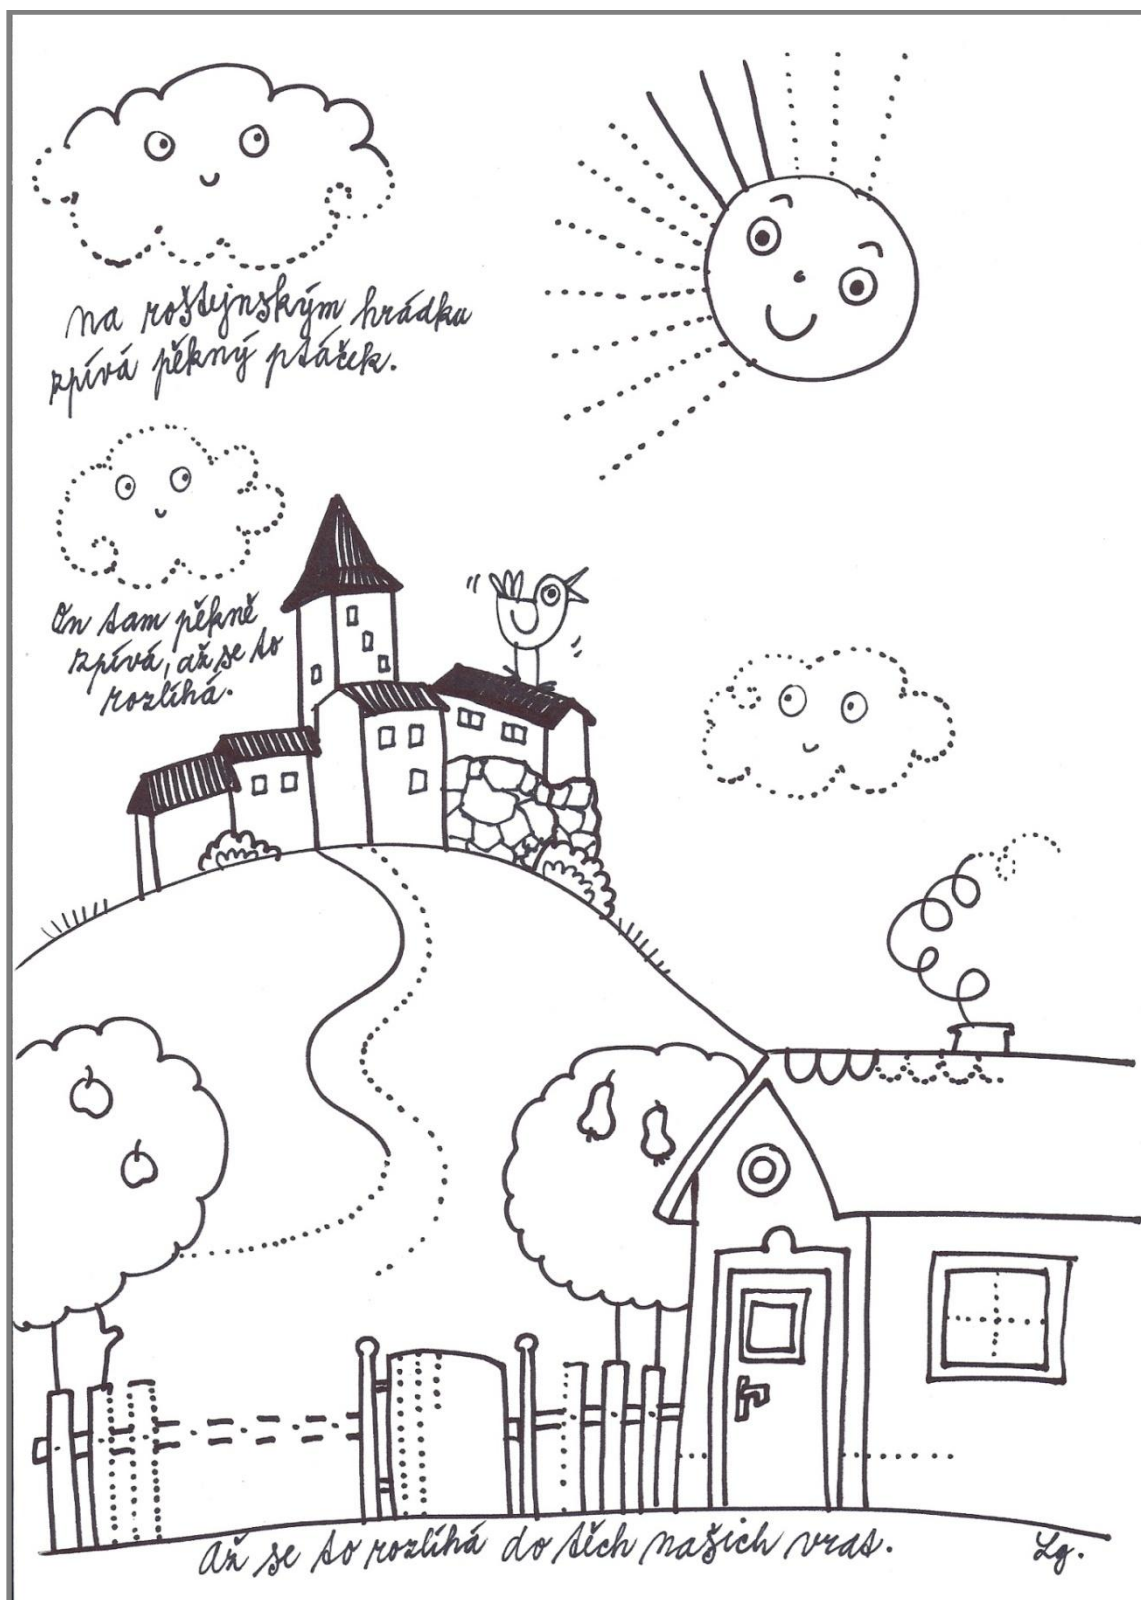 Na roštejnským hrádku
zpívá pěkný ptáček.
On tam pěkně
zpívá, až se to
rozlíhá.
Až se to rozlíhá do těch našich vrat.
Lg.